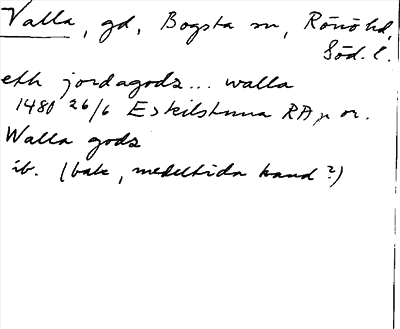 Valla, gd, Bogsta sn, Rönö hd,
Söd. l.
eth jordagods... walla
1480 26/6 Eskilstuna RA p or.
Walla gods
ib. (bak, medeltida hand?)